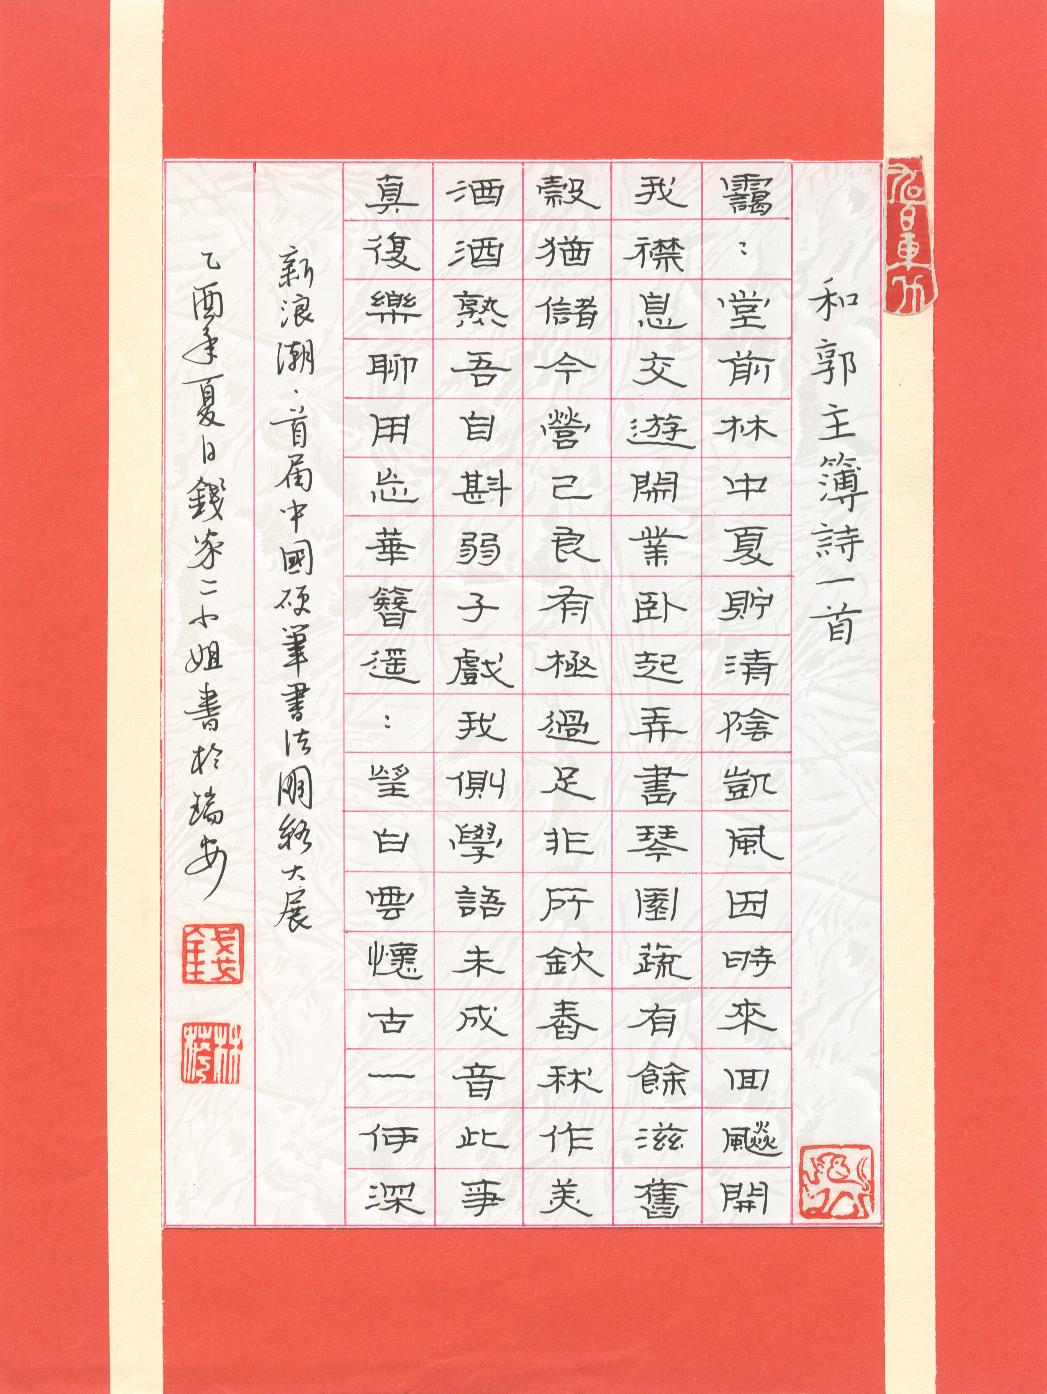 和郭主簿詩一首
靄：堂前林中夏貯清陰凱風因時來囬飈開
我襟息交遊閑業卧起弄書琴園蔬有餘滋舊
穀猶儲今營己良有極過足非所欽舂秫作美
酒酒熟吾自斟弱子戲我側學語未成音此事
真復樂聊用忘華簪遥：望白雲懷古一何深
新浪潮·首届中國硬筆書法網絡大展
乙酉年夏日錢家二小姐書於瑞安